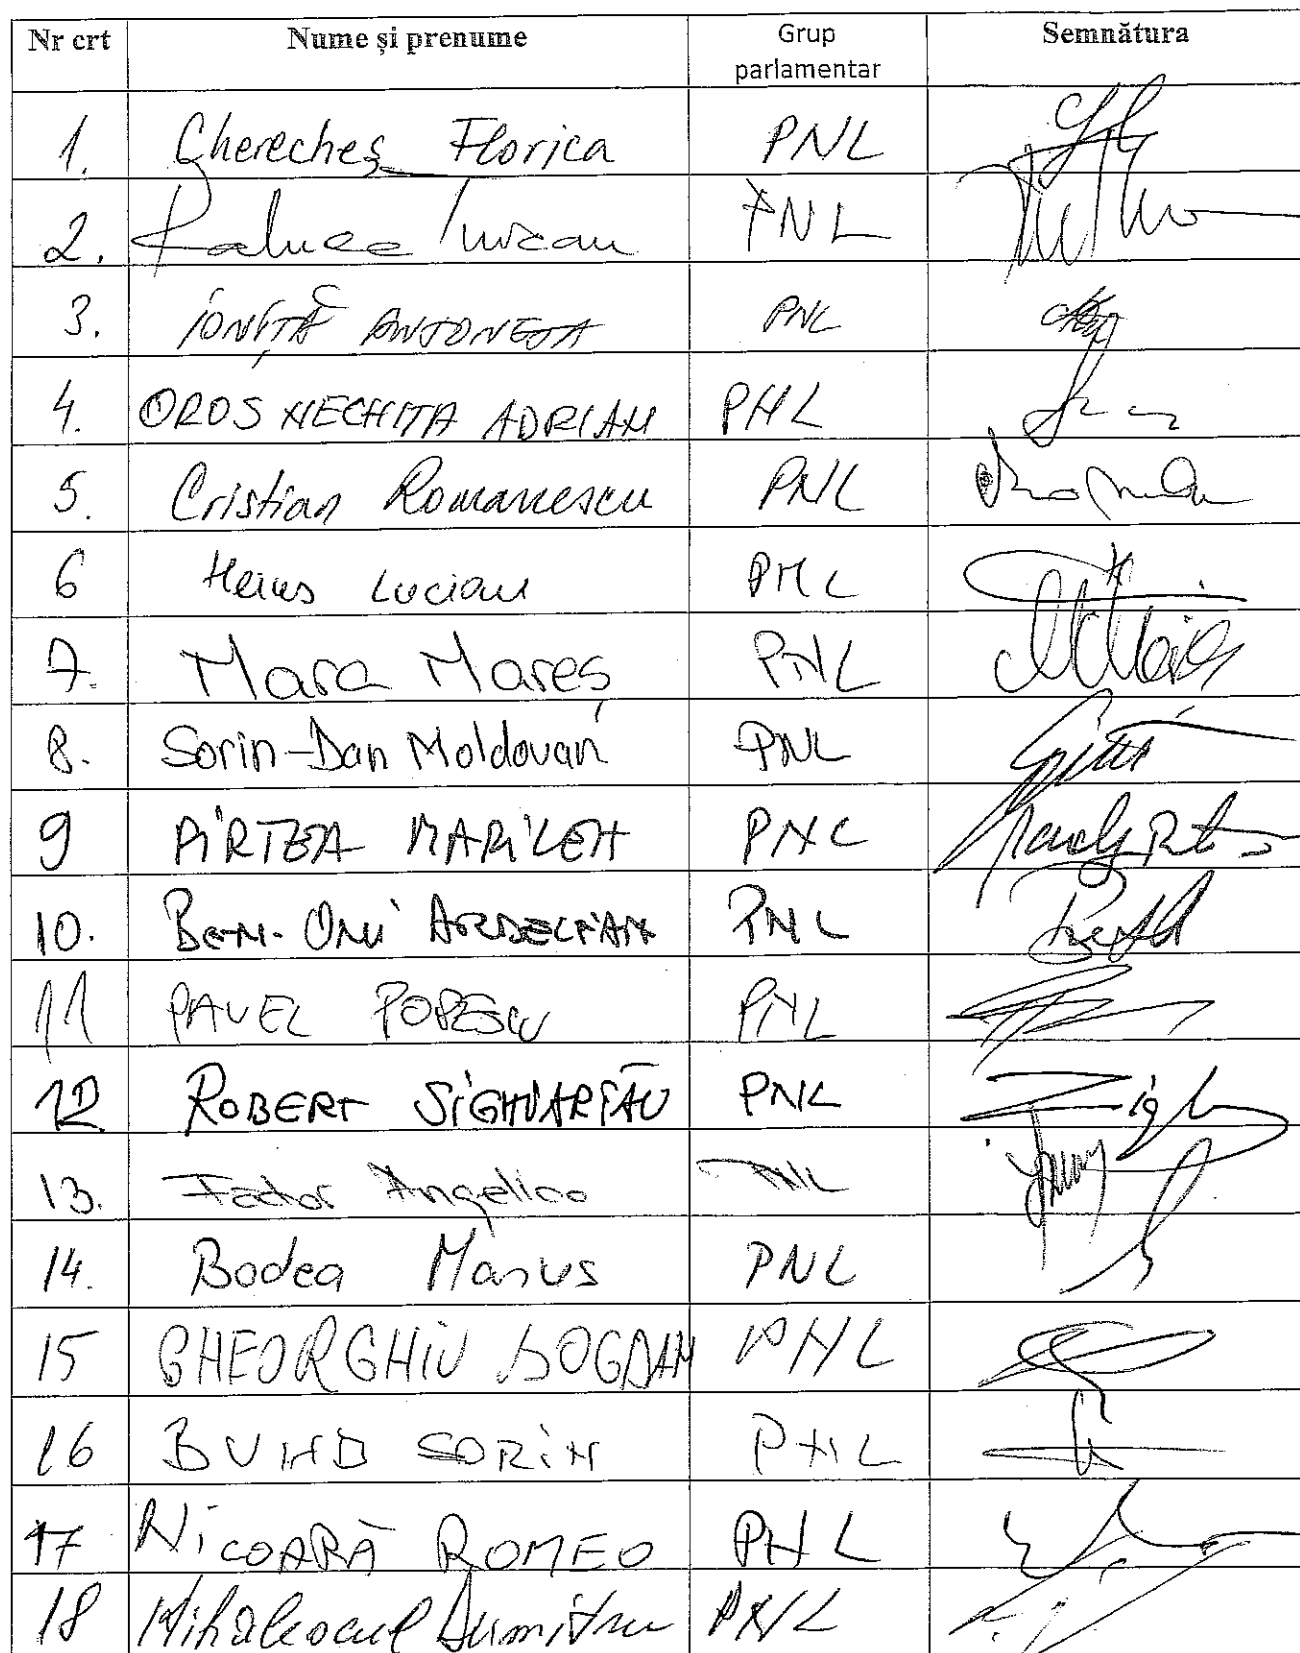 Nr crt Nume și prenume Grup parlamentar Semnătura
1. Gherecheș Florica PNL
2. Raluca Turcan PNL
3. IONIȚĂ ANTONETA PNL
4. OROS NECHITA ADRIAN PNL
5. Cristian Romanescu PNL
6 Heius Lucian PNL
7. Mara Mareș PNL
8. Sorin-Dan Moldovan PNL
9 PÎRTEA MARILEN PNL
10. BEN-ONI ARDELEAN PNL
11 PAVEL POPESCU PNL
12 ROBERT SIGHIARTĂU PNL
13. Fador Angelica PNL
14. Bodea Marius PNL
15 GHEORGHIU BOGDAN PNL
16 BUMB SORIN PNL
17 NICOARĂ ROMEO PNL
18 Mihalescul Dumitru PNL